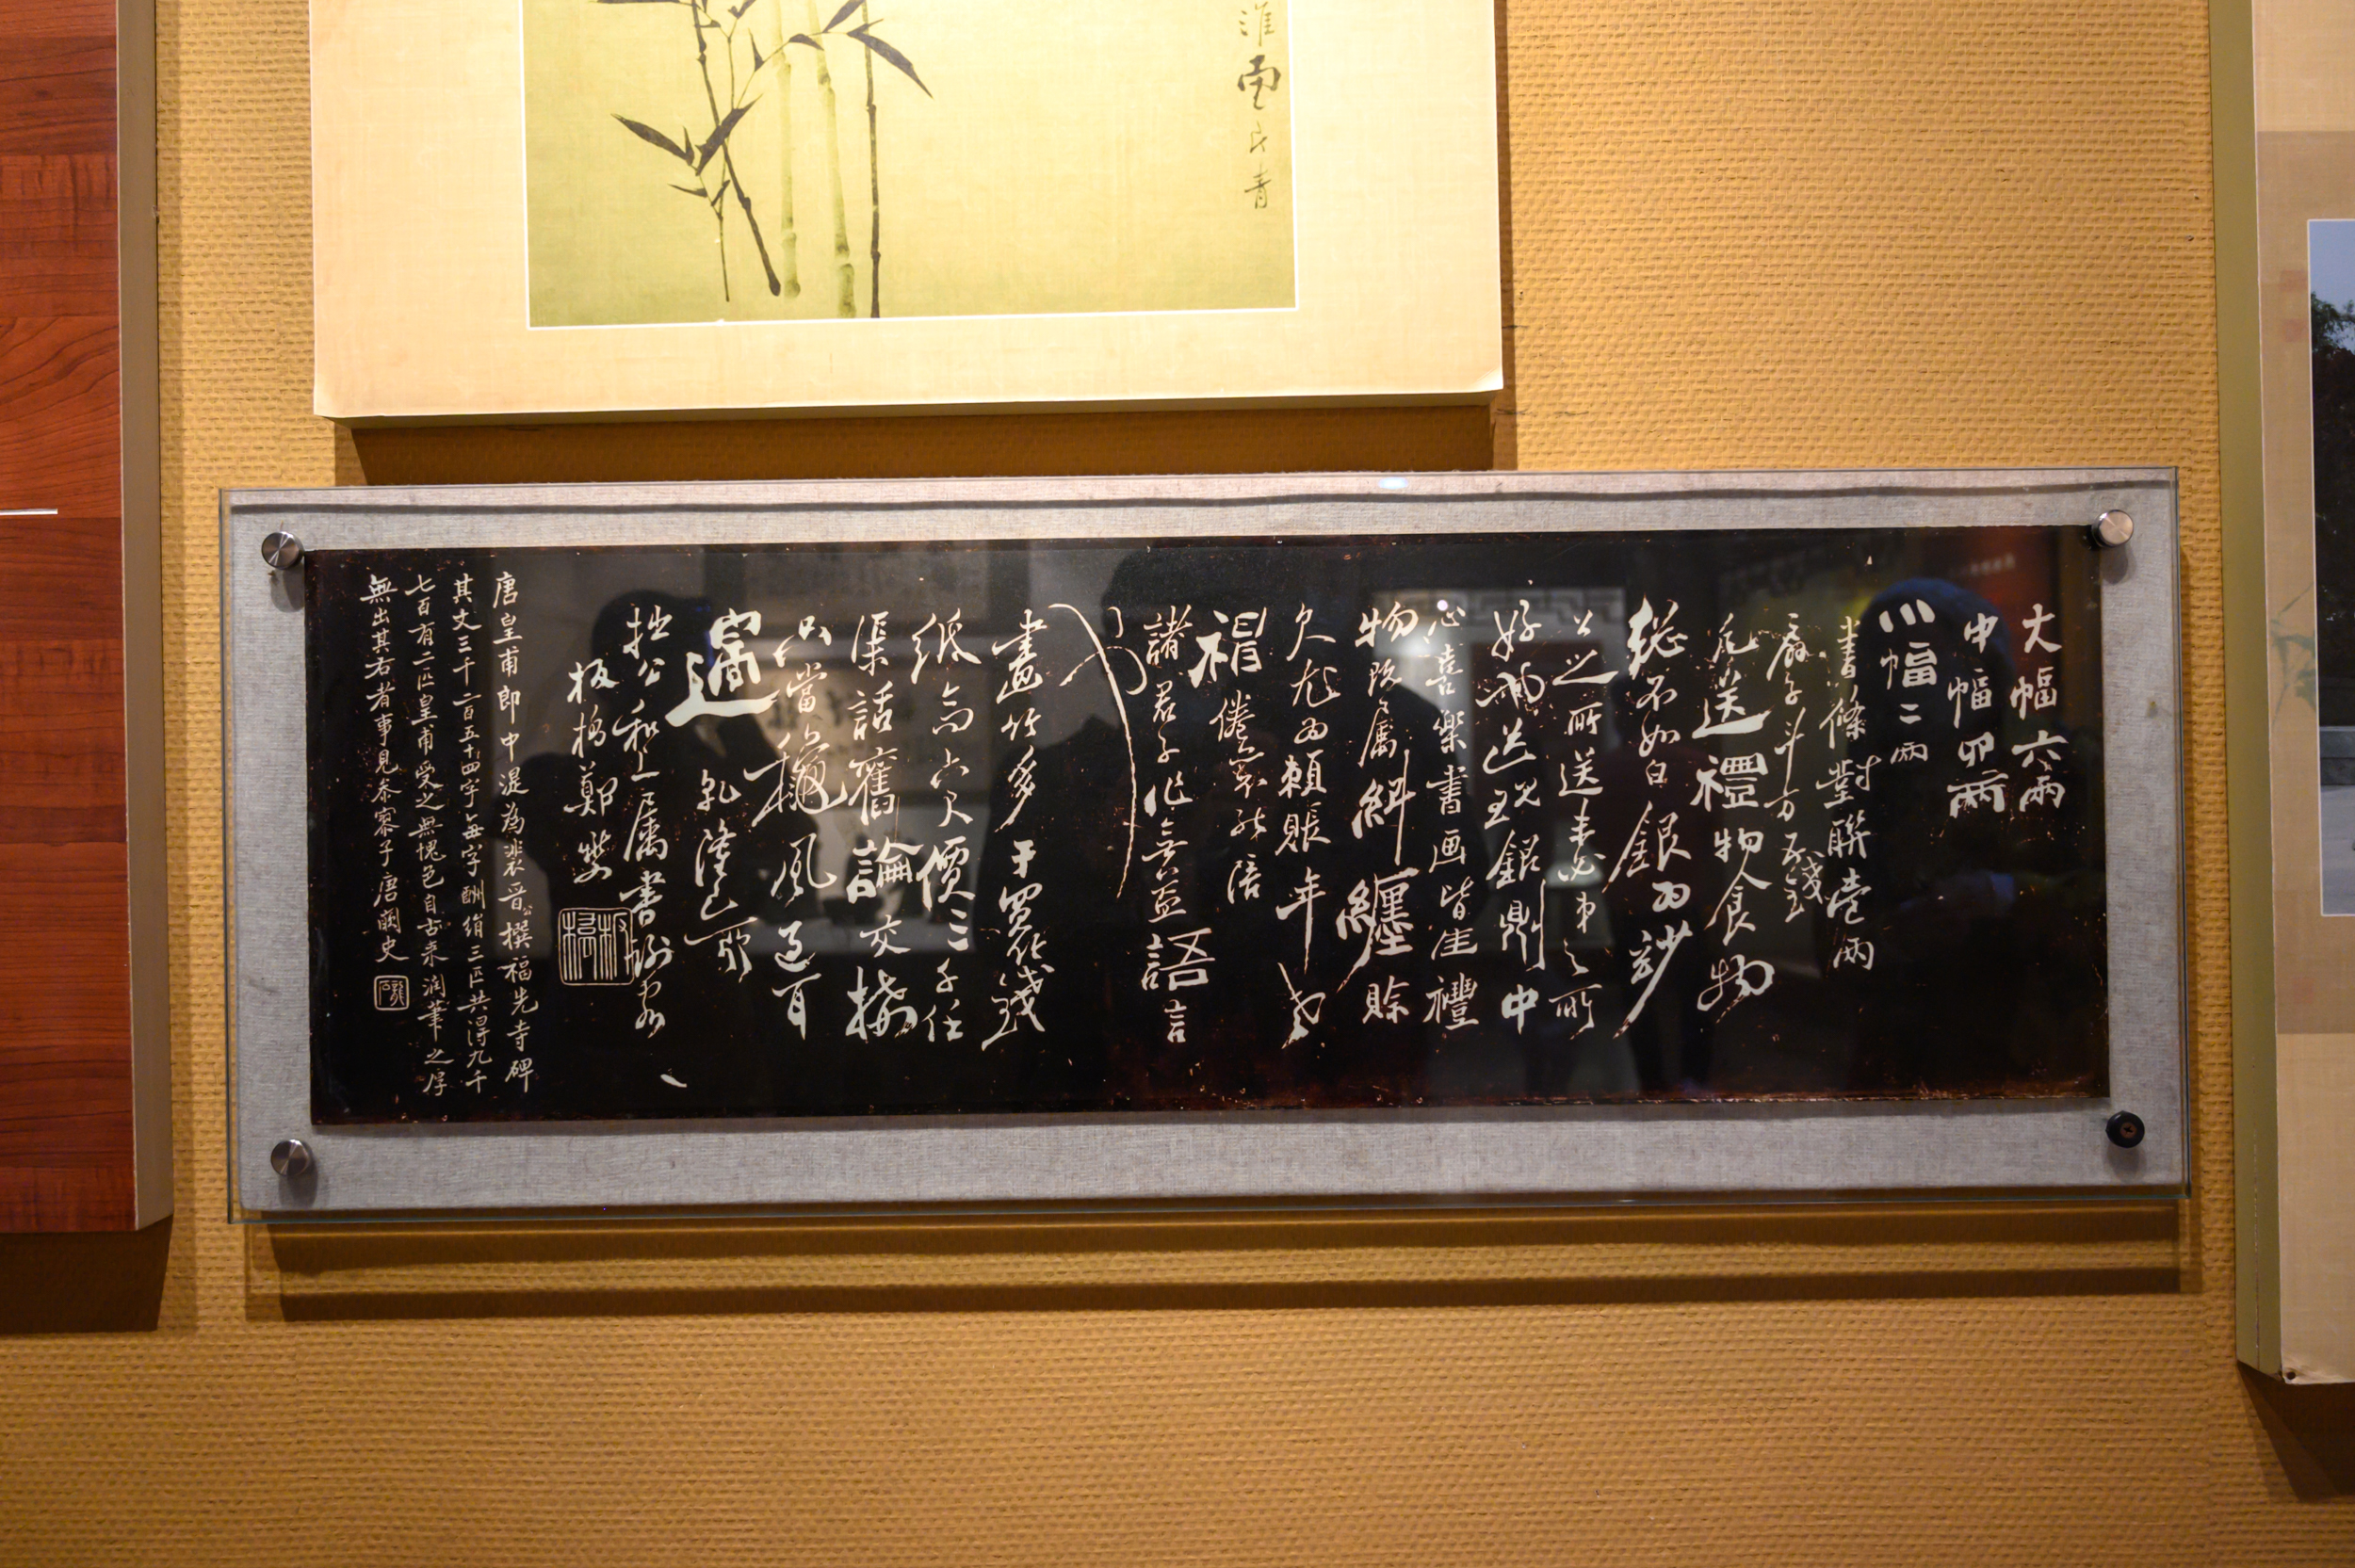 大幅六兩
中幅四兩
小幅二兩
書條對聯壹兩
扇子斗方五錢
凡送禮物食物
總不如白銀為妙
公之所送未必弟之所
好也送現銀則中
心喜樂書画皆佳禮
物既屬糾纏賒
欠尤為賴賬年老
神倦亦不能陪
諸君子作無益語言
也
畫竹多于買竹錢
紙高六尺價三千任
渠話舊論交接
只當秋風過耳
邊
乾隆己卯
拙公和上屬書謝客
板橋鄭燮
板橋
唐皇甫郎中湜為裴晋公撰福先寺碑
其文三千二百五十四字每字酬絹三匹共得九千
七百有二匹皇甫受之無愧色自古来润筆之厚
無出其右者事見泰寮子唐闕史
淮南
青